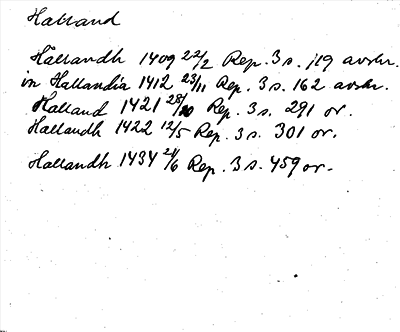 Halland
Hallandh 1409 22/2 Rep. 3 s. 119 avskr.
in Hallandia 1412 23/11 Rep. 3 s. 162 avskr.
Halland 1421 28/10 Rep. 3 s. 291 or.
Hallandh 1422 12/5 Rep. 3 s. 301 or.
Hallandh 1434 24/6 Rep. 3 s. 459 or.